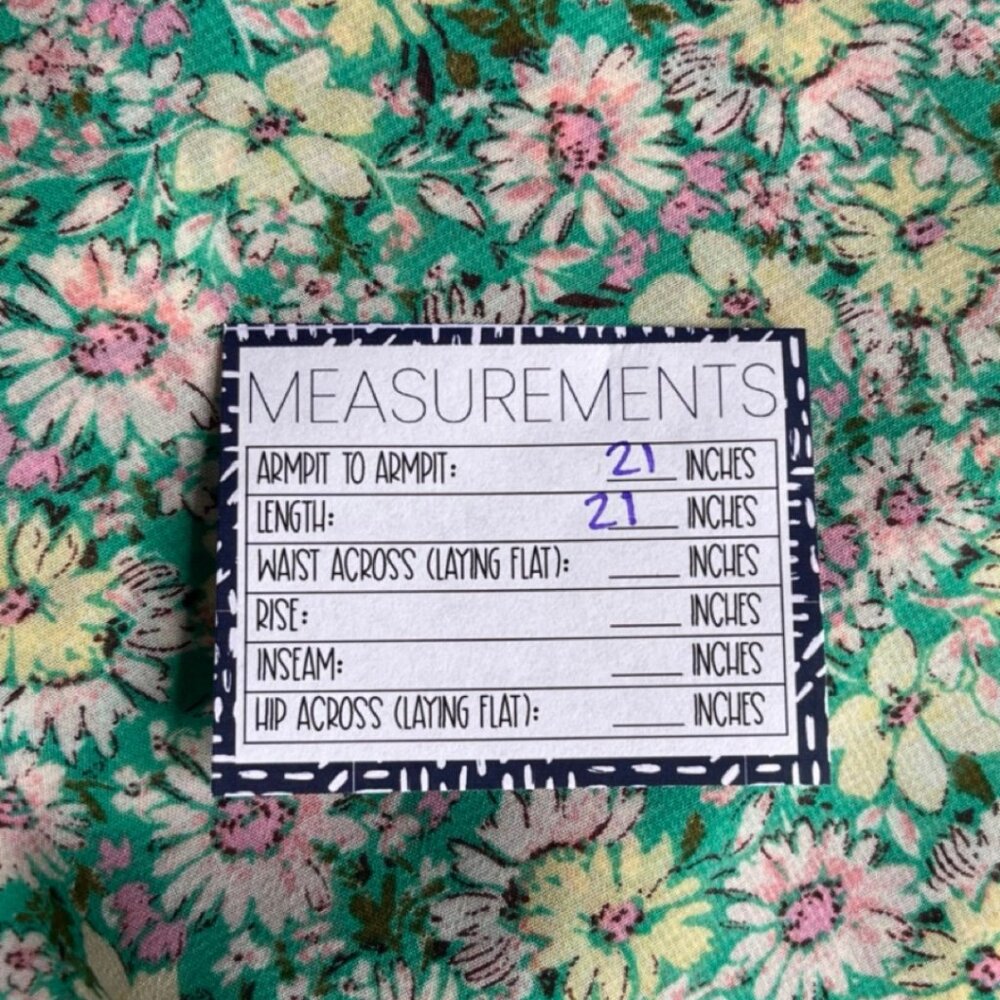 MEASUREMENTS
ARMPIT TO ARMPIT: 21 INCHES
LENGTH: 21 INCHES
WAIST ACROSS (LAYING FLAT): ____ INCHES
RISE: ____ INCHES
INSEAM: ____ INCHES
HIP ACROSS (LAYING FLAT): ____ INCHES